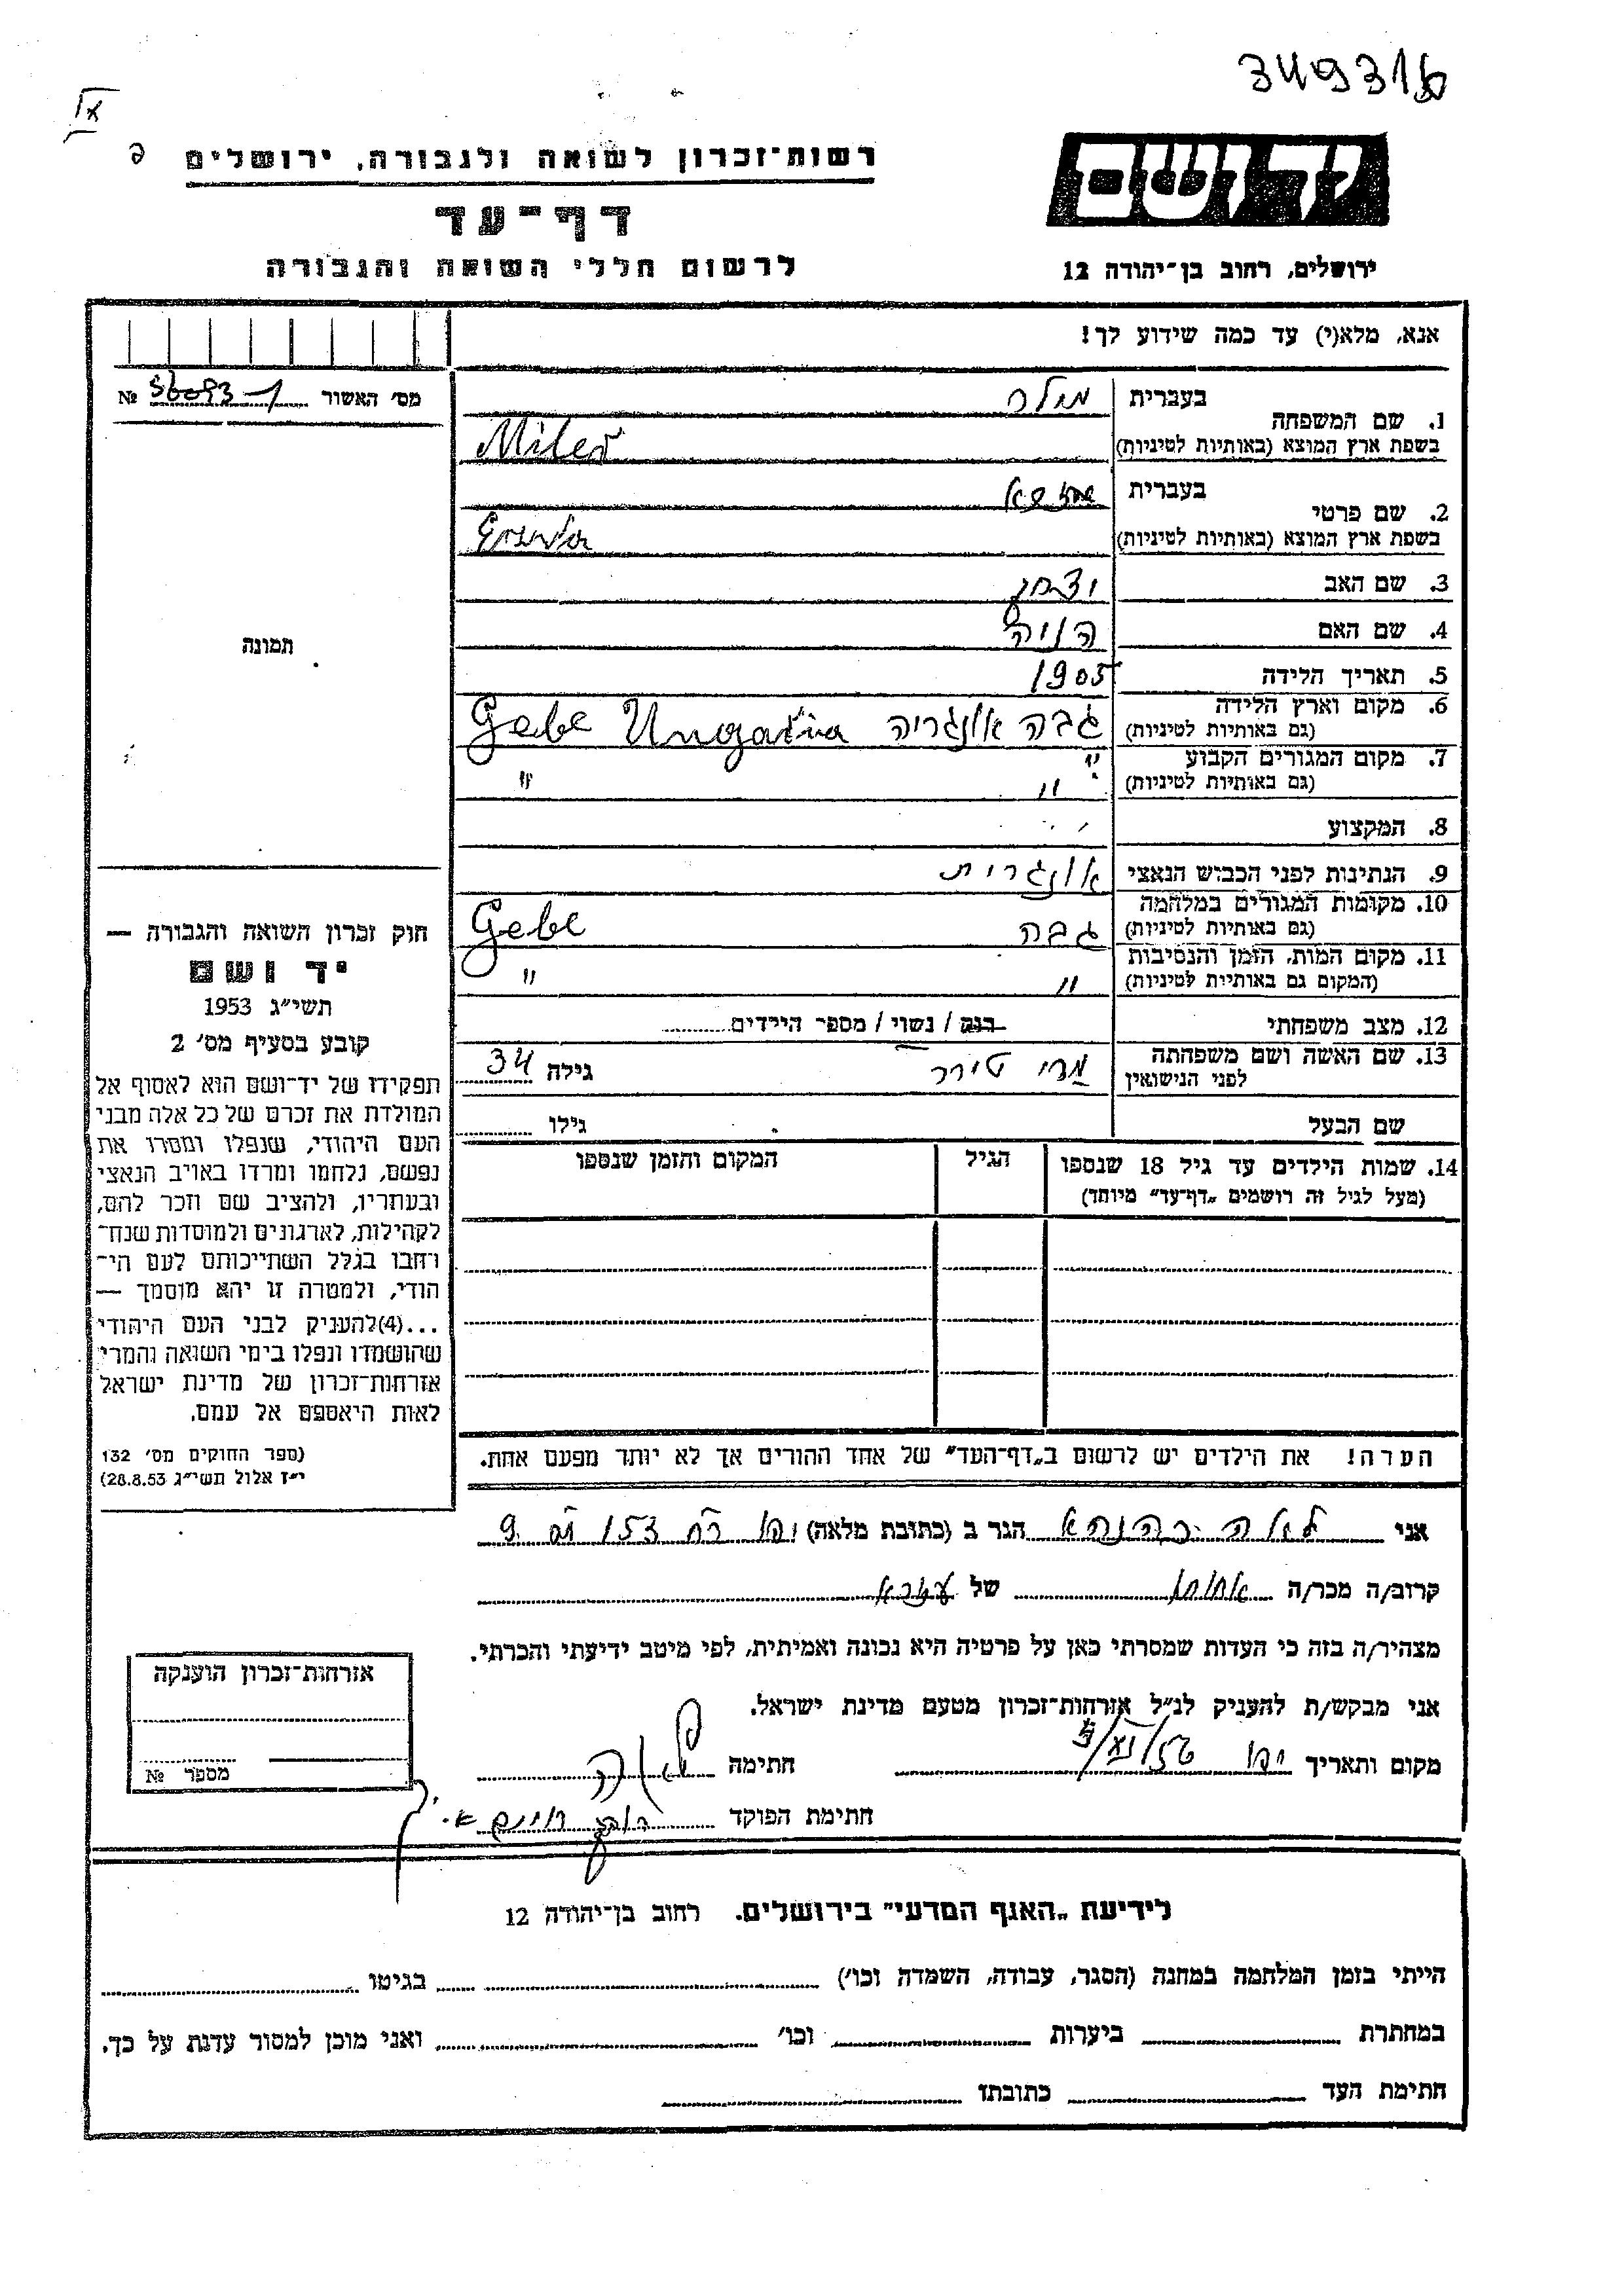 349316
IX
רשות־זכרון לשואה ולגבורה, ירושלים
יד ושם
דף־עד
לרשום חללי השואה והגבורה
ירושלים, רחוב בן־יהודה 12
אנא, מלא(י) עד כמה שידוע לך!
מס׳ האשור № 56093-1
1. שם המשפחה
בעברית מילר
בשפת ארץ המוצא (באותיות לטיניות) Miler
2. שם פרטי
בעברית
בשפת ארץ המוצא (באותיות לטיניות)
3. שם האב יצחק
4. שם האם חויה
5. תאריך הלידה 1905
6. מקום וארץ הלידה
(גם באותיות לטיניות) גבה אונגריה Gebe Ungaria
7. מקום המגורים הקבוע "
(גם באותיות לטיניות) " "
8. המקצוע
9. הנתינות לפני הכבוש הנאצי אונגרית
10. מקומות המגורים במלחמה
(גם באותיות לטיניות) גבה Gebe
11. מקום המות, הזמן והנסיבות
(המקום גם באותיות לטיניות) " "
12. מצב משפחתי רווק / נשוי / מספר הילדים
13. שם האשה ושם משפחתה
לפני הנישואין מרי גילה 34
שם הבעל גילו
14. שמות הילדים עד גיל 18 שנספו
(מעל לגיל זה רושמים „דף־עד" מיוחד)
הגיל
המקום והזמן שנספו
הערה! את הילדים יש לרשום ב„דף־העד" של אחד ההורים אך לא יותר מפעם אחת.
תמונה
חוק זכרון השואה והגבורה —
יד ושם
תשי״ג 1953
קובע בסעיף מס׳ 2
תפקידו של יד־ושם הוא לאסוף אל
המולדת את זכרם של כל אלה מבני
העם היהודי, שנפלו ומסרו את
נפשם, נלחמו ומרדו באויב הנאצי
ובעוזריו, ולהציב שם וזכר להם,
לקהילות, לארגונים ולמוסדות שנח־
רחבו בגלל השתייכותם לעם הי־
הודי, ולמטרה זו יהא מוסמך —
...(4)להעניק לבני העם היהודי
שהושמדו ונפלו בימי השואה והמרי
אזרחות־זכרון של מדינת ישראל
לאות היאספם אל עמם.
(ספר החוקים מס׳ 132
י״ז אלול תשי״ג 28.8.53)
אני לאה כהנא הגר ב (כתובת מלאה) יפו רח 153 מס 9
קרוב/ה מכר/ה אחותו של
מצהיר/ה בזה כי העדות שמסרתי כאן על פרטיה היא נכונה ואמיתית, לפי מיטב ידיעתי והכרתי.
אני מבקש/ת להעניק לנ״ל אזרחות־זכרון מטעם מדינת ישראל.
מקום ותאריך יפו חתימה
חתימת הפוקד
אזרחות־זכרון הוענקה
מספר №
לידיעת „האגף המדעי" בירושלים. רחוב בן־יהודה 12
הייתי בזמן המלחמה במחנה (הסגר, עבודה, השמדה וכו׳) בגיטו
במחתרת ביערות וכו׳ ואני מוכן למסור עדות על כך.
חתימת העד כתובתו